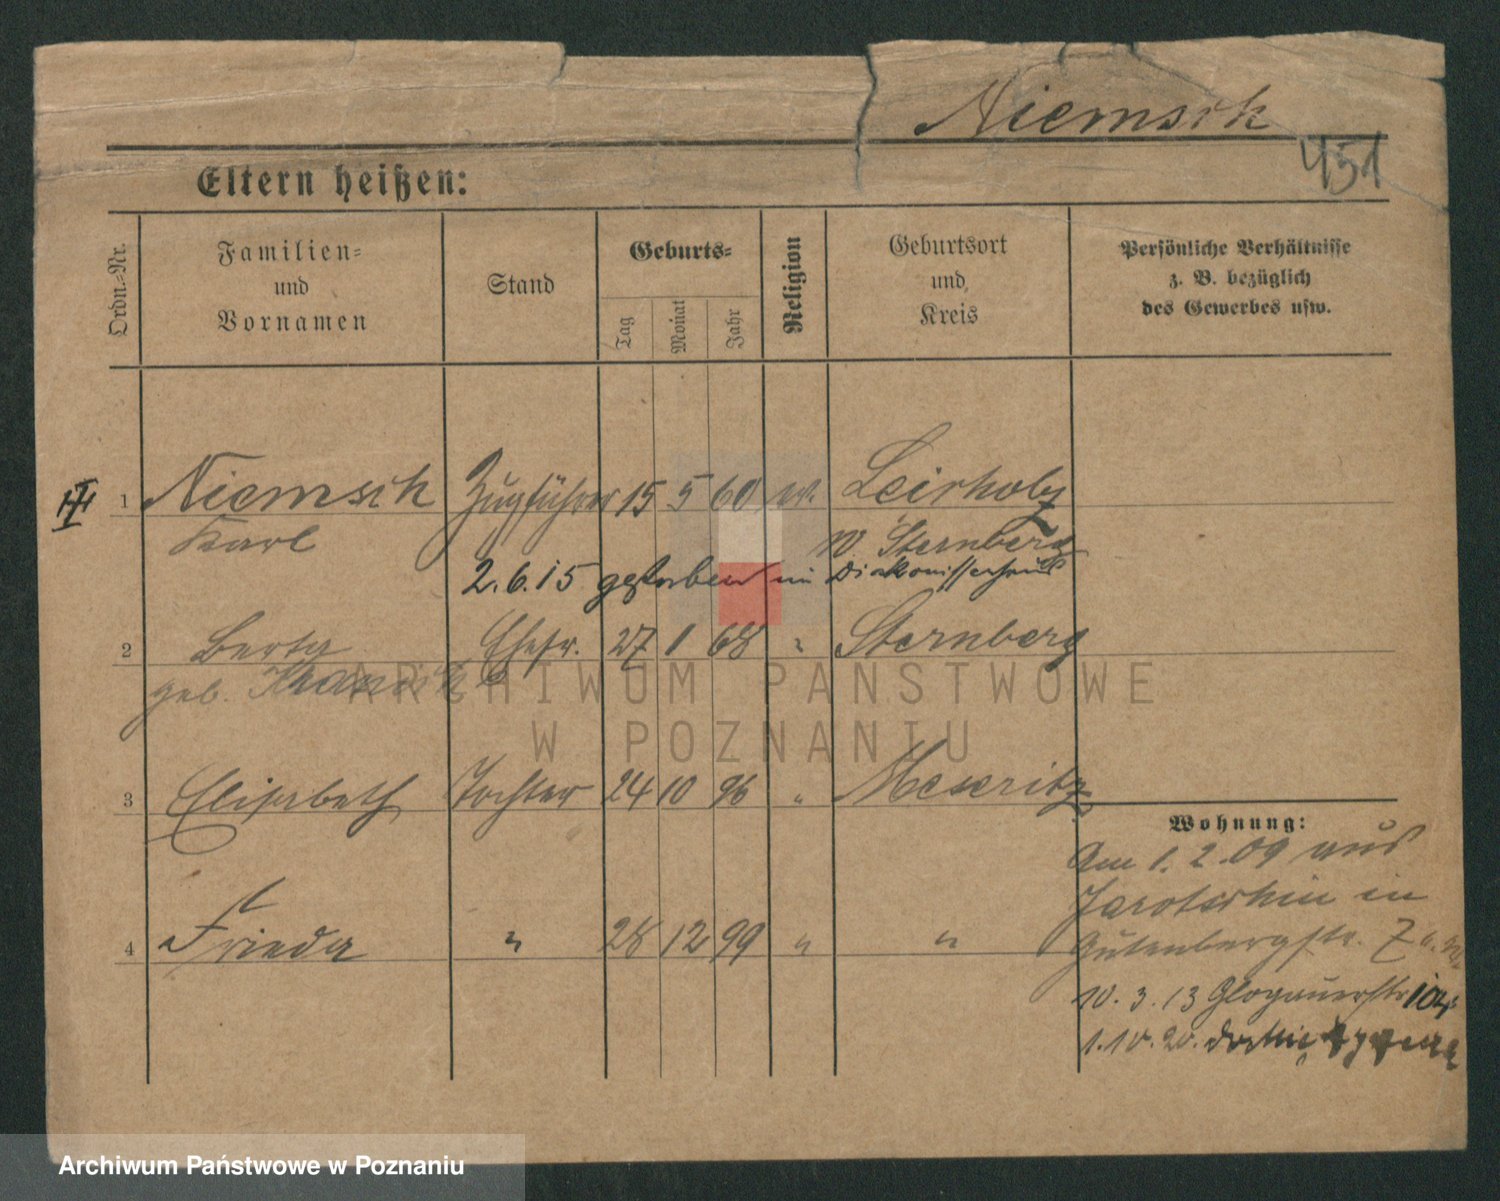 Niemsch
451
Eltern heißen:
Ordn.-Nr.
Familien-
und
Vornamen
Stand
Geburts-
Tag
Monat
Jahr
Religion
Geburtsort
und
Kreis
Persönliche Verhältnisse
z. B. bezüglich
des Gewerbes usw.
1 Niemsch Zugführer 15 5 60 ev.
Karl
Sternberg
2.6.15 gestorben im Diakonissenhaus
2 Berta Ehefr. 27 1 68 " Sternberg
geb.
3 Elisabeth Tochter 24 10 96 " Meseritz
4 Frieda " 28 12 99 " "
Wohnung:
Am 1.2.09 aus
Jarotschin in
Gutenbergstr. 7
10.3.13 Glogauerstr 104
1.10.20.
ARCHIWUM PAŃSTWOWE
W POZNANIU
Archiwum Państwowe w Poznaniu